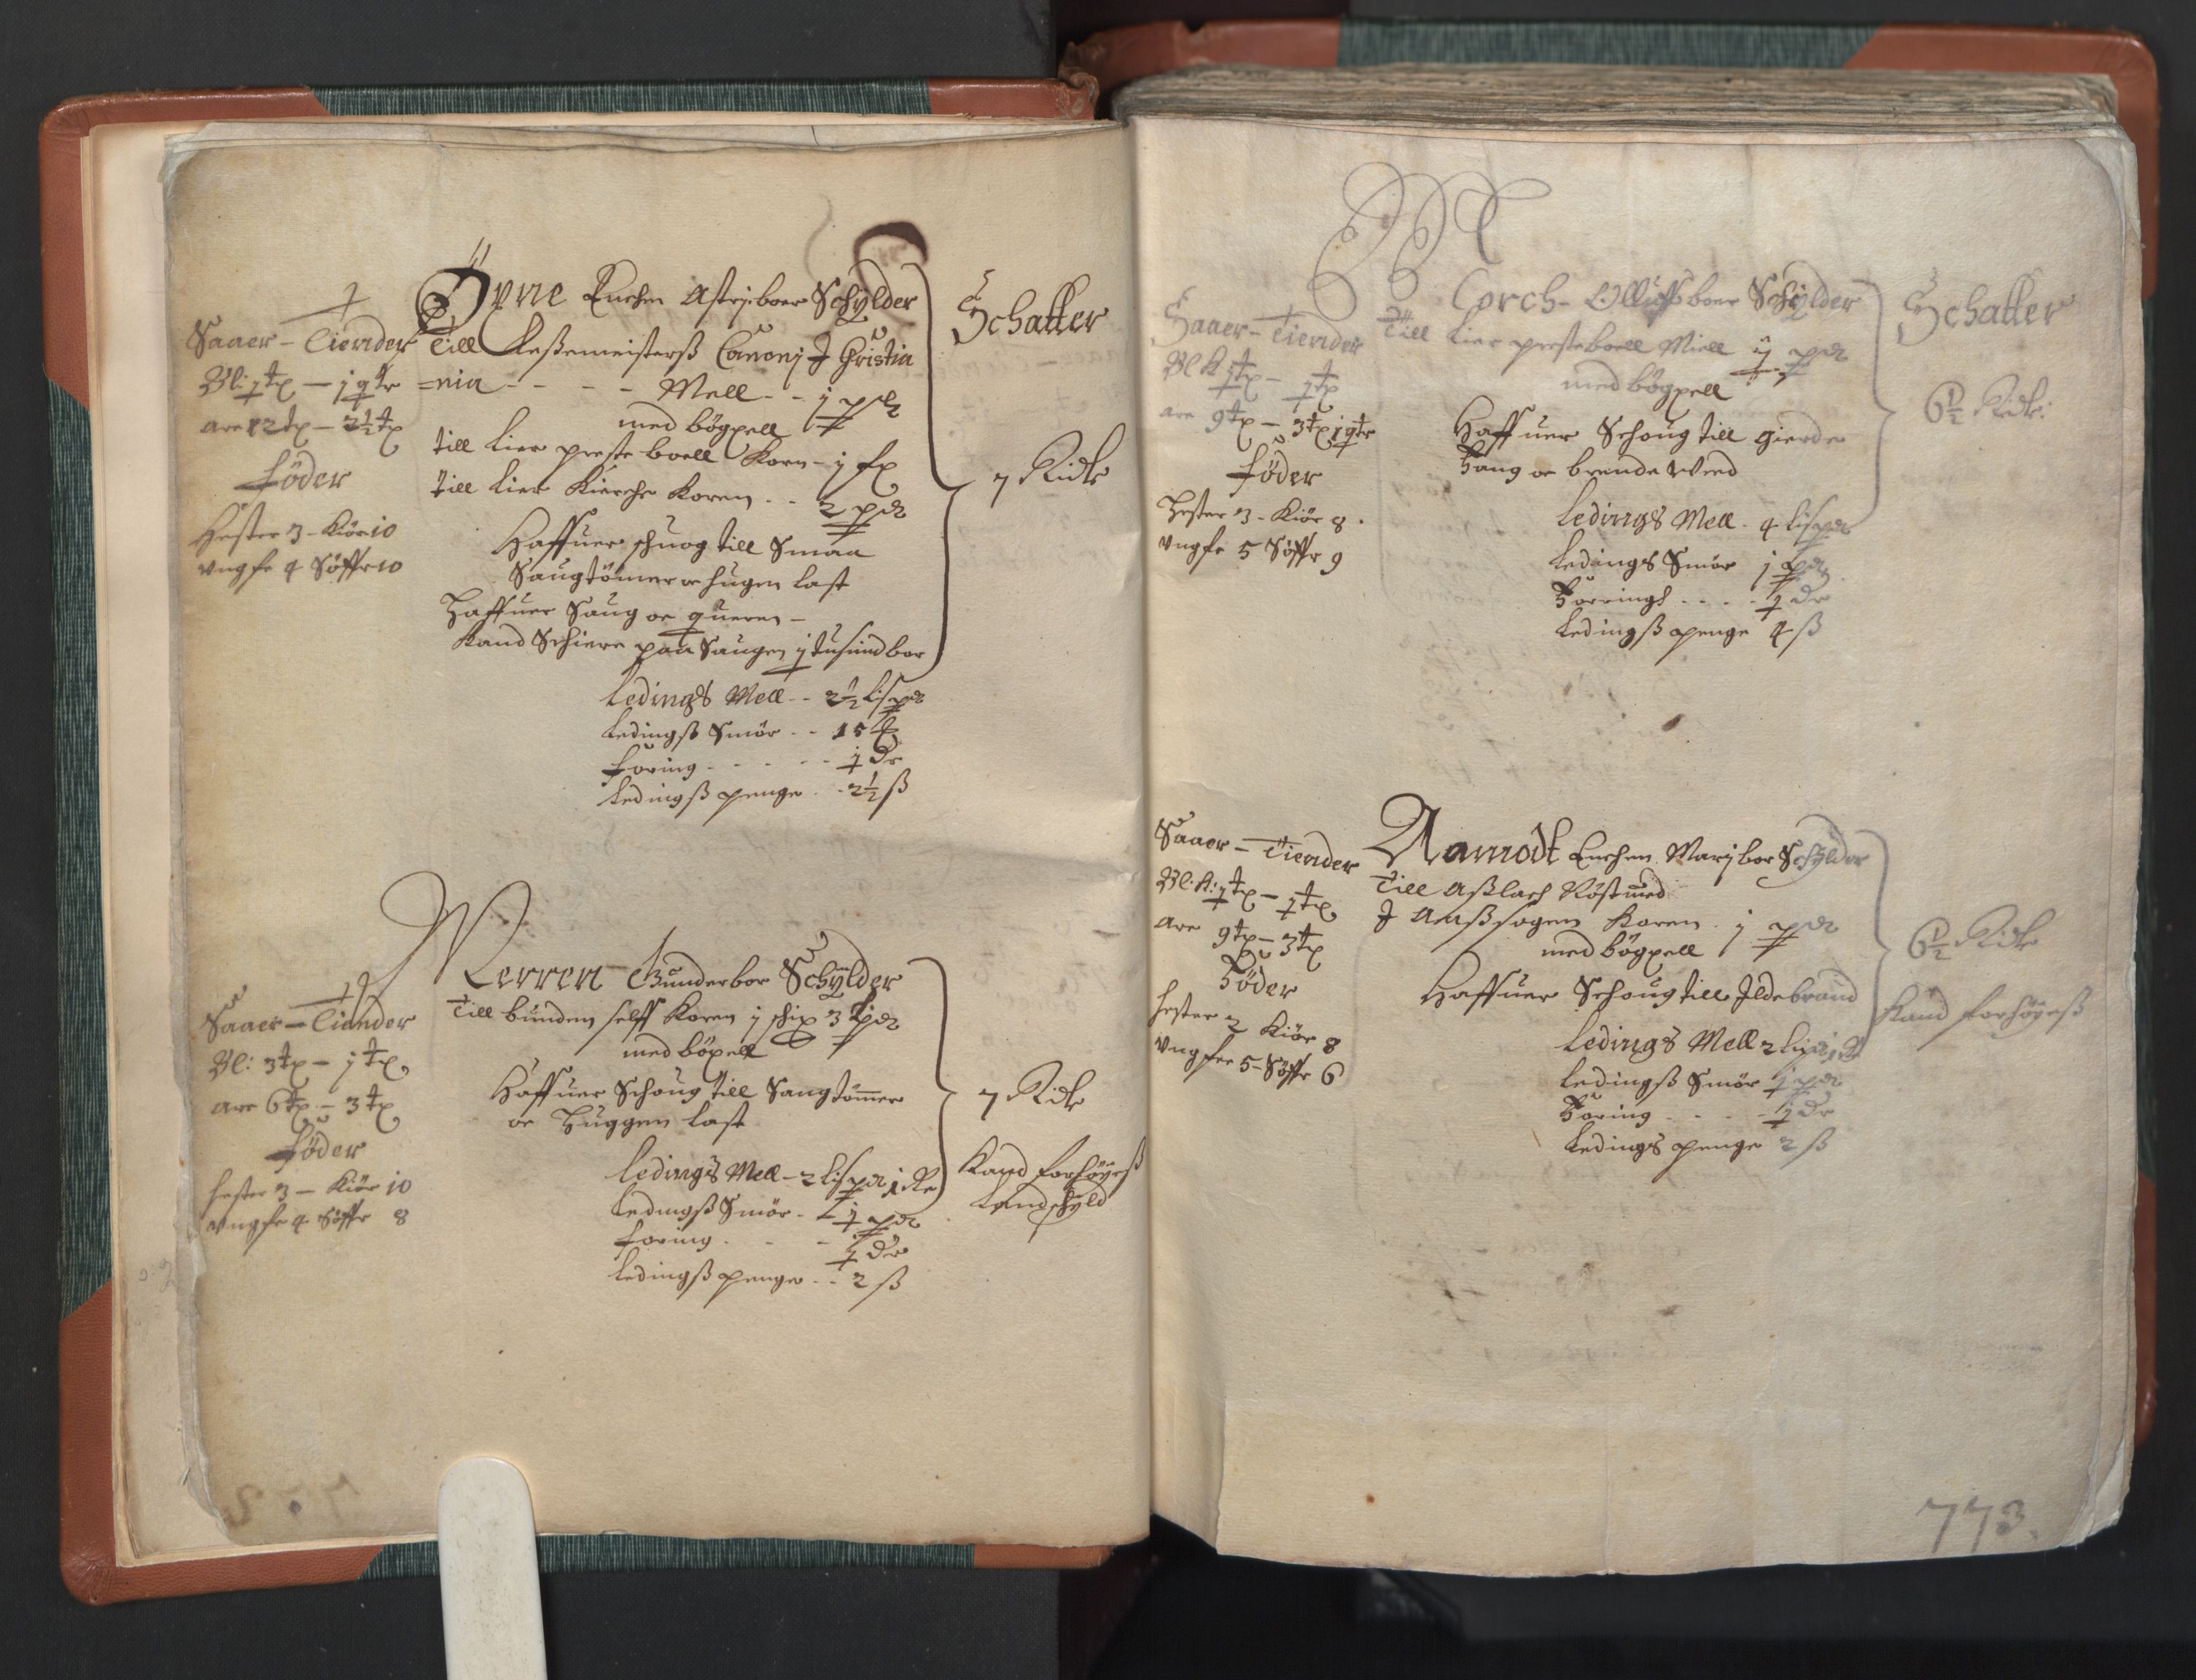 Öpne Enchen Astrj boer Schylder
Till Leßemeisterß Canonj J Christia
=nia - - - - Mell - - j pd
med bögxell
till Lier preste boell Korn - j fx
till Lier Kierche Koren - - 2 pd
Haffuer schuog till Smaa
Saugtömer oc hugen last
Haffuer Saug oc queren -
Kand Schiere paa Saugen j tusind bor
Ledings Mell - - 2½ Lispd
Ledingß Smör - - 15
foring - - - - - j Dr
Ledingß penge - - 2½ ß
Schatter
7 Ridr
Saaer - Tiender
Bl: j tx - j qtr
are 12 tx - 2½ tx
föder
Hester 3 - Kiör 10
vngfe 4 Söffr 10
Werren Gunderboe Schylder
Till bunden selff Koren j schip 3 Lpd
med böxell
Haffuer Schoug till Saugtömmer
oc Huggen last
Ledings Mell - 2 Lispd
Ledingß Smör - j pd
foring - - - j Dr
Ledingß penge - - 2 ß
7 Ridr
Kand forhöyeß
Landschyld
Saaer - Tiender
Bl: 3 tx - j tx
are 6 tx - 3 tx
föder
hester 3 - Kiör 10
vngfe 4 Söffr 8
Corch - Olluffs boer Schylder
Till Lier presteboell Miell ij pd
med bögxell
Haffuer Schoug till gierde
Fang oc brende Weed
Ledings Mell - 4 Lispd
Ledings Smör j pd
Forringh - - - - j Dr
Ledingß penge 4 ß
Schatter
6½ Ridr:
Saaer - Tiender
Bl K j tx - j tx
are 9 tx - 3 tx j qtr
föder
Hester 3 - Kiör 8 -
vngfe 5 Söffr 9
Aamodt Enchen Marj boe Schylder
Till Aßlach Röstued
J Aaßsogen Koren - j pd
med bögxell
Haffuer Schoug till Jldebrand
Ledings Mell 2 Lispd
Ledingß Smör j pd
Foring - - - - j Dr
Ledings penge 2 ß
6½ Ridr
Kand forhöyeß
Saaer - Tiender
Bl: K: j tx - j tx
are 9 tx - 3 tx
Föder
hester 2 Kiör 8
Vngfee 5 - Söffr 6
773